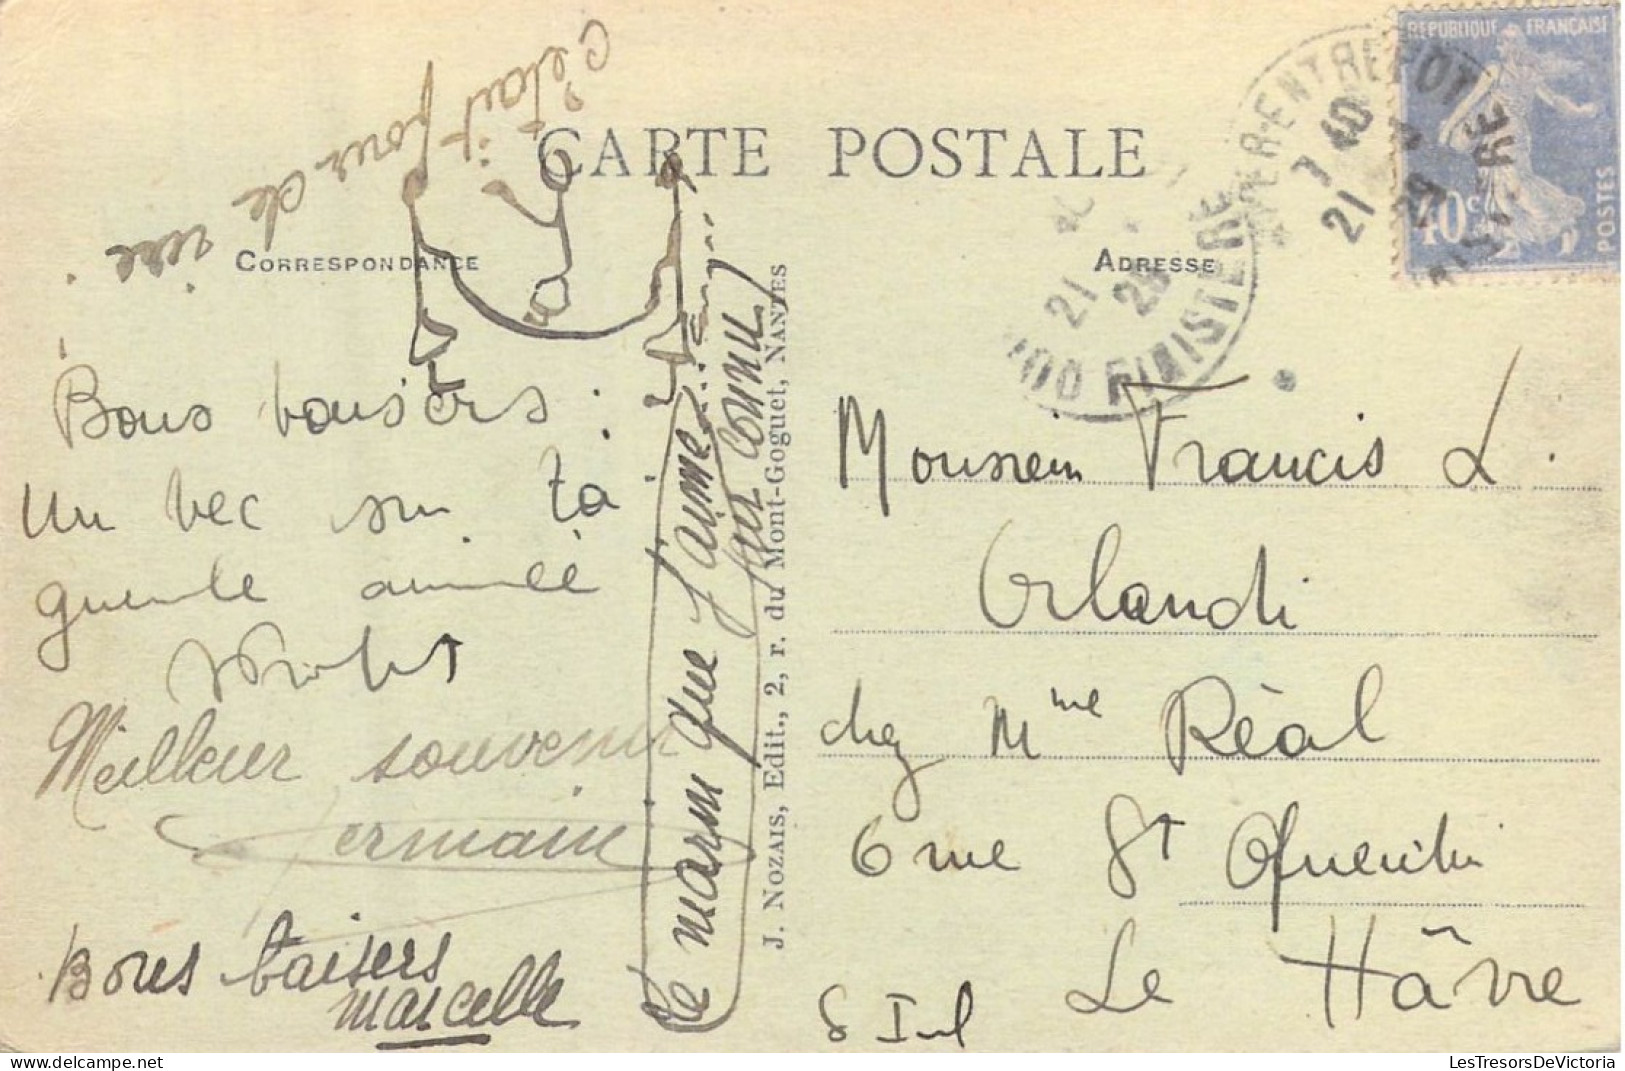 C'était pour de
rire.
CARTE POSTALE
CORRESPONDANCE
ADRESSE
Bons baisers
Un bec sur ta
gueule aimée
Meilleur souvenir
Germain
Bons baisers
Marcelle
le marin que j'aime...
(pur connu)
J. NOZAIS, Edit., 2, r. du Mont-Goguet, NANTES
REPUBLIQUE FRANÇAISE
40c
POSTES
QUIMPER-ENTREPOT
7 40
21
FINISTERE
21
Monsieur Francis L.
Orlandi
chez Mme Réal
6 rue St Quentin
Le Hâvre
S Inf
LesTresorsDeVictoria